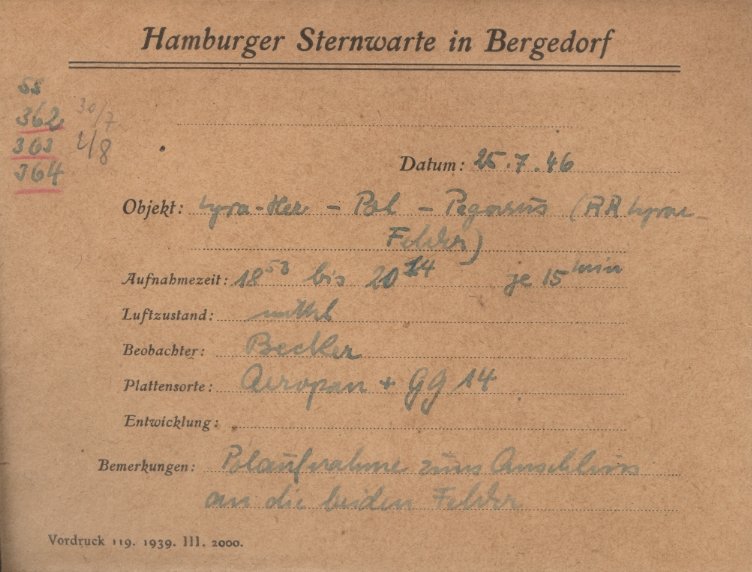 Hamburger Sternwarte in Bergedorf
SS
362 30/7
363 2/8
364
Datum: 25.7.46
Objekt: Lyra-Her – Pol – Pegasus (RR Lyrae-
Felder)
Aufnahmezeit: 18 53 bis 20 14 je 15 min
Luftzustand: mittel
Beobachter: Becker
Plattensorte: Aeropan + GG 14
Entwicklung:
Bemerkungen: Polaufnahme zum Anschluss
an die beiden Felder
Vordruck 119. 1939. III. 2000.